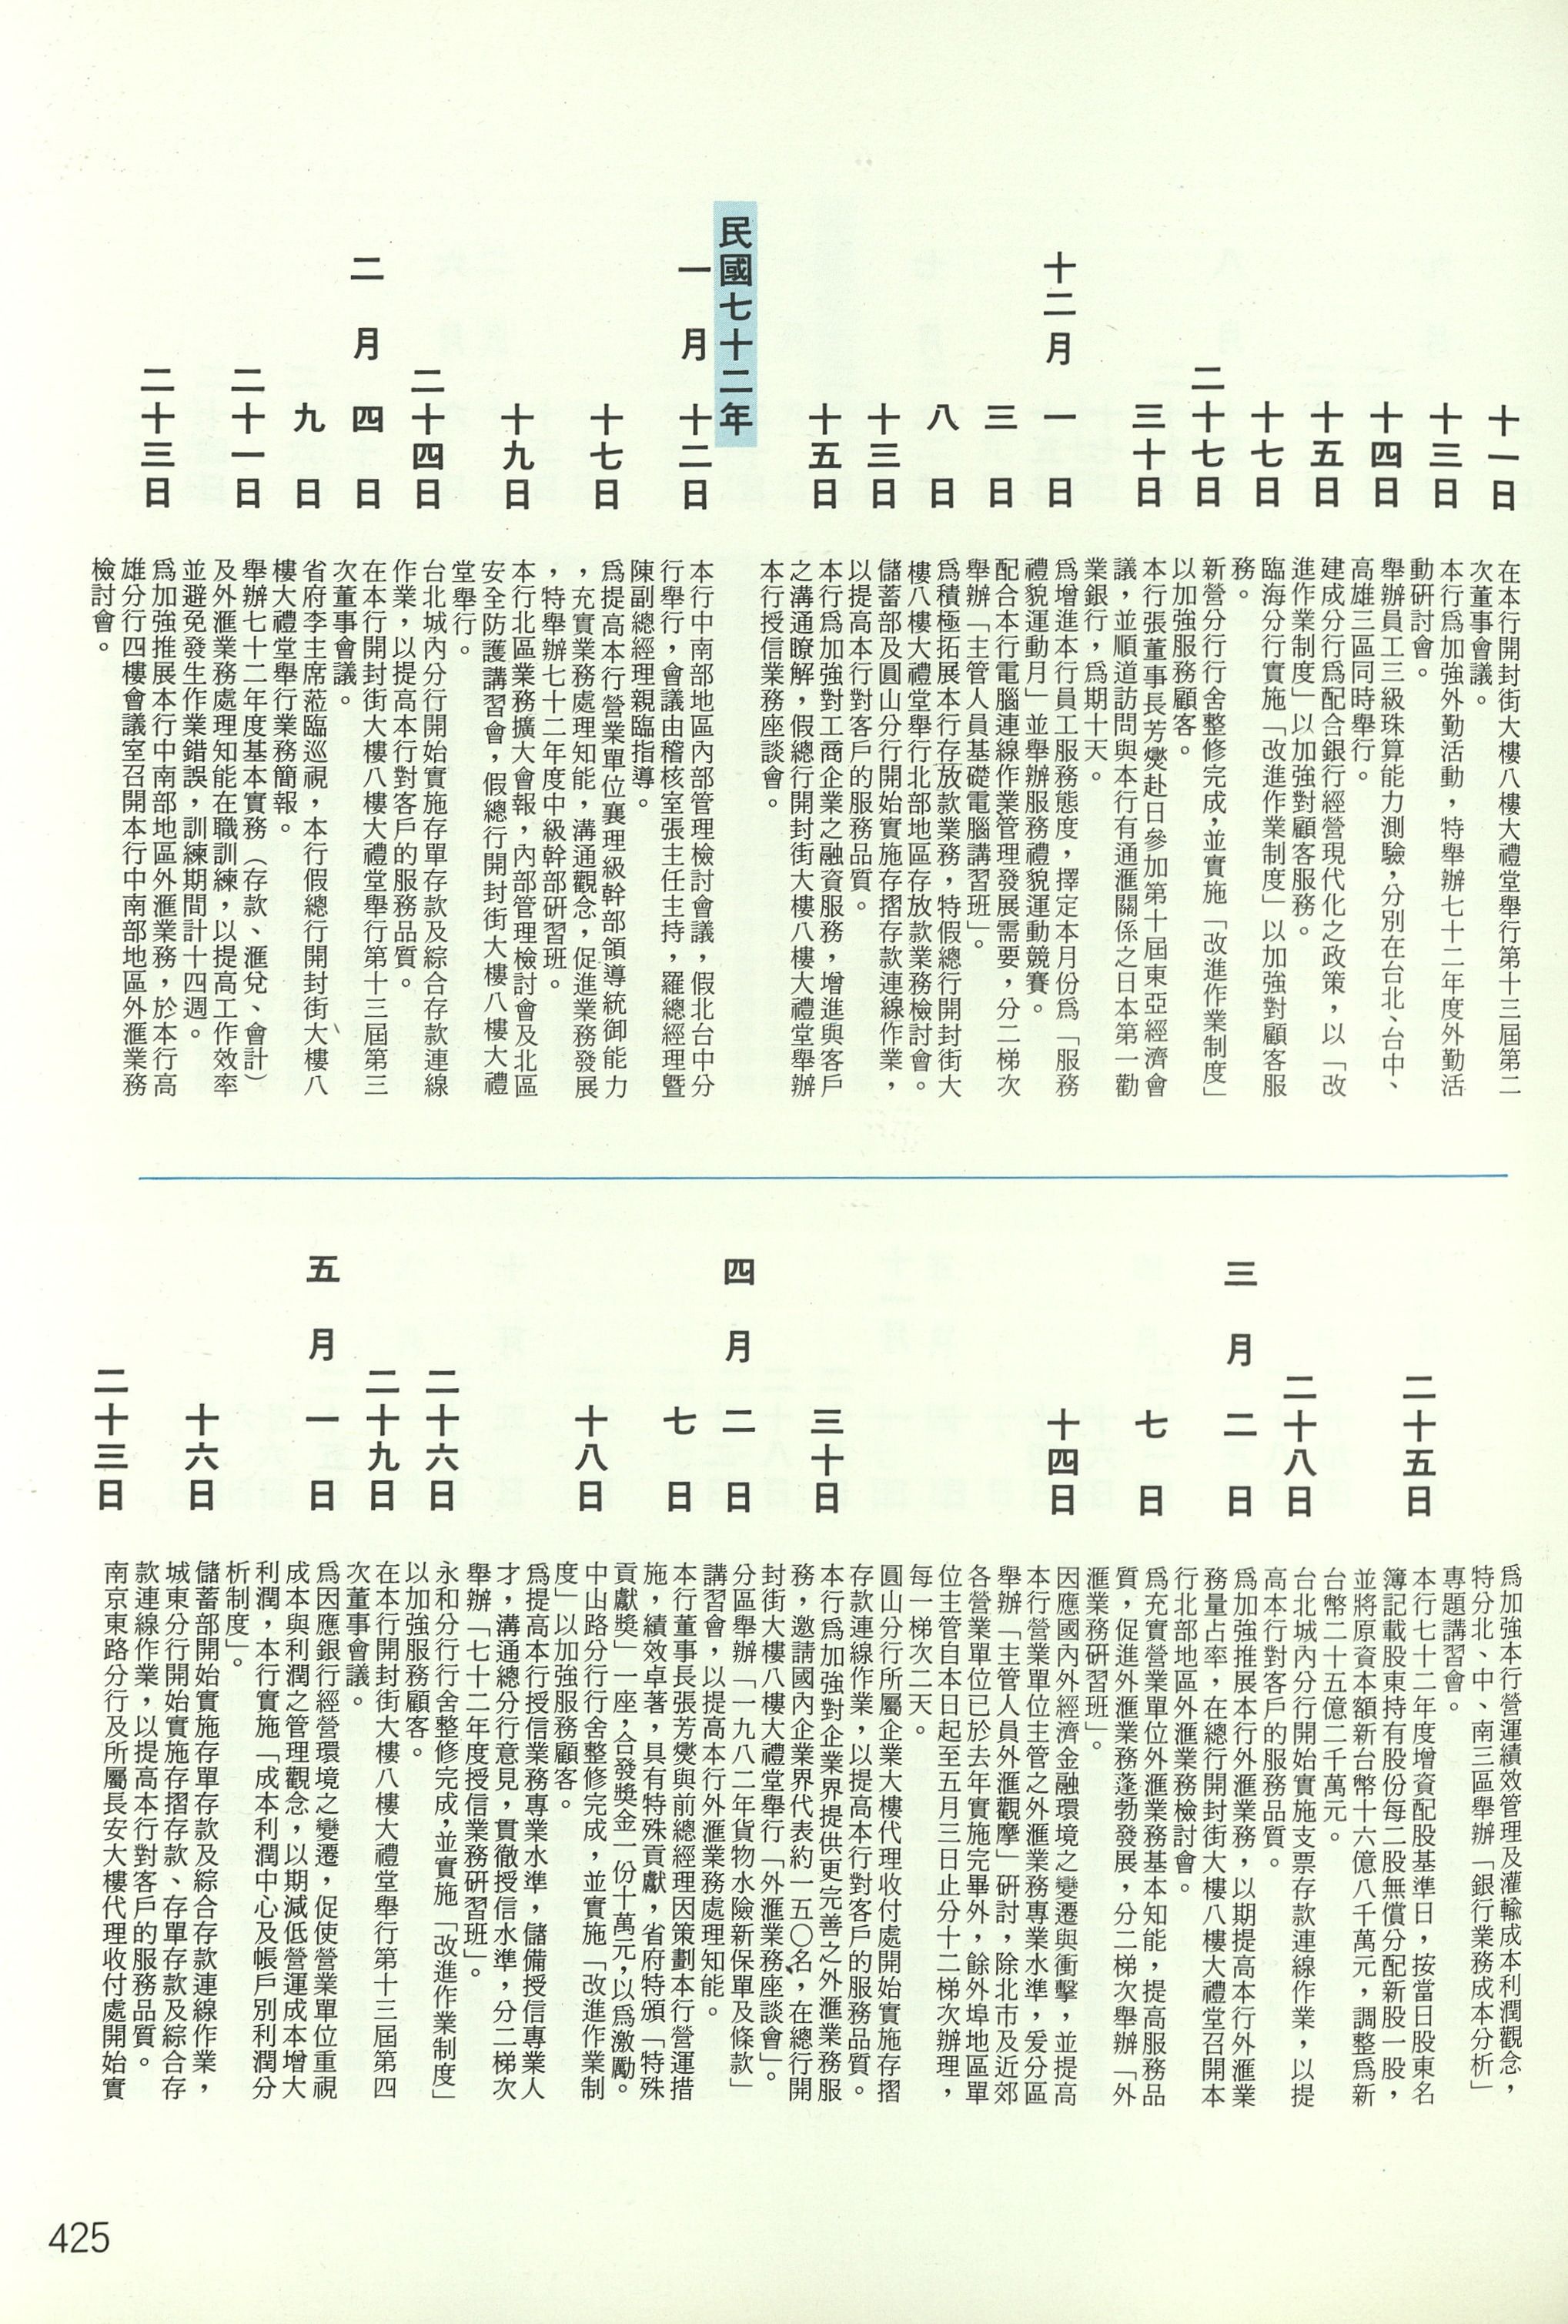 十一日
在本行開封街大樓八樓大禮堂舉行第十三屆第二
次董事會議。
十三日
本行爲加強外勤活動，特舉辦七十二年度外勤活
動研討會。
十四日
舉辦員工三級珠算能力測驗，分別在台北、台中、
高雄三區同時舉行。
十五日
建成分行爲配合銀行經營現代化之政策，以「改
進作業制度」以加強對顧客服務。
十七日
臨海分行實施「改進作業制度」以加強對顧客服
務。
二十七日
新營分行行舍整修完成，並實施「改進作業制度」
以加強服務顧客。
三十日
本行張董事長芳燮赴日參加第十屆東亞經濟會
議，並順道訪問與本行有通滙關係之日本第一勸
業銀行，爲期十天。
十二月一日
爲增進本行員工服務態度，擇定本月份爲「服務
禮貌運動月」並舉辦服務禮貌運動競賽。
三日
配合本行電腦連線作業管理發展需要，分二梯次
舉辦「主管人員基礎電腦講習班」。
八日
爲積極拓展本行存放款業務，特假總行開封街大
樓八樓大禮堂舉行北部地區存放款業務檢討會。
十三日
儲蓄部及圓山分行開始實施存摺存款連線作業，
以提高本行對客戶的服務品質。
十五日
本行爲加強對工商企業之融資服務，增進與客戶
之溝通瞭解，假總行開封街大樓八樓大禮堂舉辦
本行授信業務座談會。
民國七十二年
一月十二日
本行中南部地區內部管理檢討會議，假北台中分
行舉行，會議由稽核室張主任主持，羅總經理曁
陳副總經理親臨指導。
十七日
爲提高本行營業單位襄理級幹部領導統御能力
，充實業務處理知能，溝通觀念，促進業務發展
，特舉辦七十二年度中級幹部研習班。
十九日
本行北區業務擴大會報，內部管理檢討會及北區
安全防護講習會，假總行開封街大樓八樓大禮
堂舉行。
二十四日
台北城內分行開始實施存單存款及綜合存款連線
作業，以提高本行對客戶的服務品質。
二月四日
在本行開封街大樓八樓大禮堂舉行第十三屆第三
次董事會議。
九日
省府李主席蒞臨巡視，本行假總行開封街大樓八
樓大禮堂舉行業務簡報。
二十一日
舉辦七十二年度基本實務（存款、滙兌、會計）
及外滙業務處理知能在職訓練，以提高工作效率
並避免發生作業錯誤，訓練期間計十四週。
二十三日
爲加強推展本行中南部地區外滙業務，於本行高
雄分行四樓會議室召開本行中南部地區外滙業務
檢討會。
二十五日
爲加強本行營運績效管理及灌輸成本利潤觀念，
特分北、中、南三區舉辦「銀行業務成本分析」
專題講習會。
本行七十二年度增資配股基準日，按當日股東名
簿記載股東持有股份每二股無償分配新股一股，
並將原資本額新台幣十六億八千萬元，調整爲新
台幣二十五億二千萬元。
二十八日
台北城內分行開始實施支票存款連線作業，以提
高本行對客戶的服務品質。
三月二日
爲加強推展本行外滙業務，以期提高本行外滙業
務量占率，在總行開封街大樓八樓大禮堂召開本
行北部地區外滙業務檢討會。
七日
爲充實營業單位外滙業務基本知能，提高服務品
質，促進外滙業務蓬勃發展，分二梯次舉辦「外
滙業務研習班」。
十四日
因應國內外經濟金融環境之變遷與衝擊，並提高
本行營業單位主管之外滙業務專業水準，爰分區
舉辦「主管人員外滙觀摩」研討，除北市及近郊
各營業單位已於去年實施完畢外，餘外埠地區單
位主管自本日起至五月三日止分十二梯次辦理，
每一梯次二天。
圓山分行所屬企業大樓代理收付處開始實施存摺
存款連線作業，以提高本行對客戶的服務品質。
三十日
本行爲加強對企業界提供更完善之外滙業務服
務，邀請國內企業界代表約一五〇名，在總行開
封街大樓八樓大禮堂舉行「外滙業務座談會」。
四月二日
分區舉辦「一九八二年貨物水險新保單及條款」
講習會，以提高本行外滙業務處理知能。
七日
本行董事長張芳燮與前總經理因策劃本行營運措
施，績效卓著，具有特殊貢獻，省府特頒「特殊
貢獻獎」一座，合發獎金一份十萬元，以爲激勵。
十八日
中山路分行行舍整修完成，並實施「改進作業制
度」以加強服務顧客。
爲提高本行授信業務專業水準，儲備授信專業人
才，溝通總分行意見，貫徹授信水準，分二梯次
舉辦「七十二年度授信業務研習班」。
二十六日
永和分行行舍整修完成，並實施「改進作業制度」
以加強服務顧客。
二十九日
在本行開封街大樓八樓大禮堂舉行第十三屆第四
次董事會議。
五月一日
爲因應銀行經營環境之變遷，促使營業單位重視
成本與利潤之管理觀念，以期減低營運成本增大
利潤，本行實施「成本利潤中心及帳戶別利潤分
析制度」。
十六日
儲蓄部開始實施存單存款及綜合存款連線作業，
城東分行開始實施存摺存款、存單存款及綜合存
款連線作業，以提高本行對客戶的服務品質。
二十三日
南京東路分行及所屬長安大樓代理收付處開始實
425